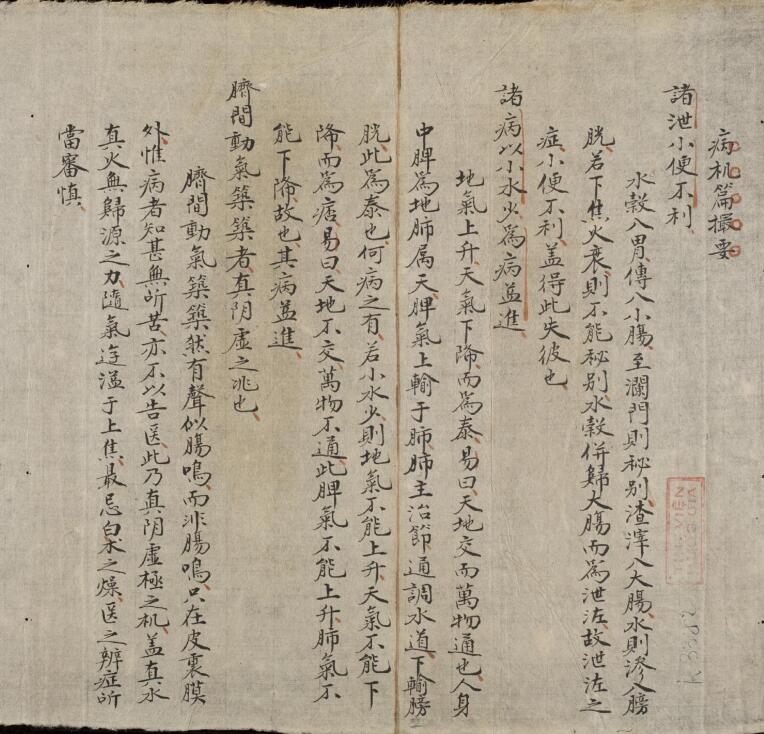 病机篇撮要
諸泄小便不利
水穀入胃傳入小腸至瀾門則秘别渣滓入大腸水則滲入膀
胱若下焦火衰則不能秘别水穀併歸大腸而為泄泻故泄泻之
症小便不利盖得此失彼也
諸病以小水少為病益進
地氣上升天氣下降而為泰易曰天地交而萬物通也人身
中脾為地肺属天脾氣上輸于肺肺主治節通調水道下輸膀
胱此為泰也何病之有若小水少則地氣不能上升天氣不能下
降而為痞易曰天地不交萬物不通此脾氣不能上升肺氣不
能下降故也其病益進
臍間動氣築築者真阴虛之兆也
臍間動氣築築然有聲似腸鳴而非腸鳴只在皮裏膜
外惟病者知甚無所苦亦不以告医此乃真阴虛極之机盖真水
真火無歸源之力隨氣迸溢于上焦最忌白朮之燥医之辨症所
當審慎